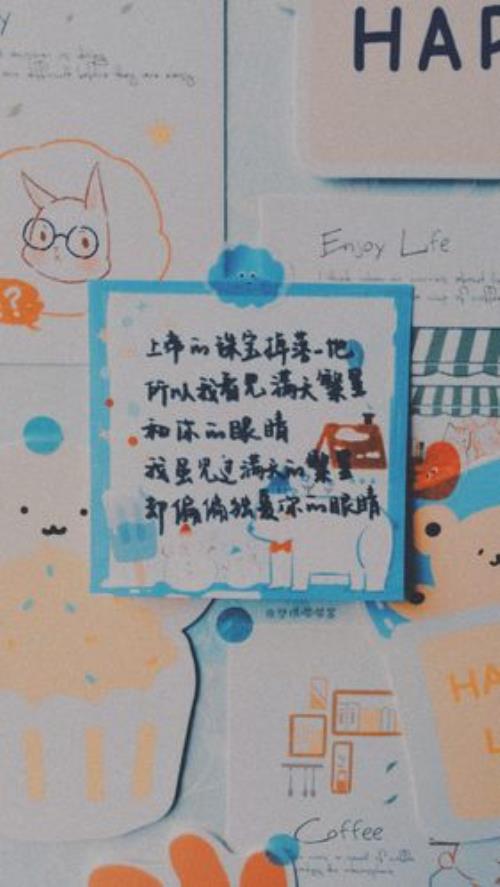 HAP
Enjoy Life
上帝的珠宝掉落一地
所以我看见满天繁星
和你的眼睛
我虽见过满天的繁星
却偏偏独爱你的眼睛
?
HA
L
Coffee